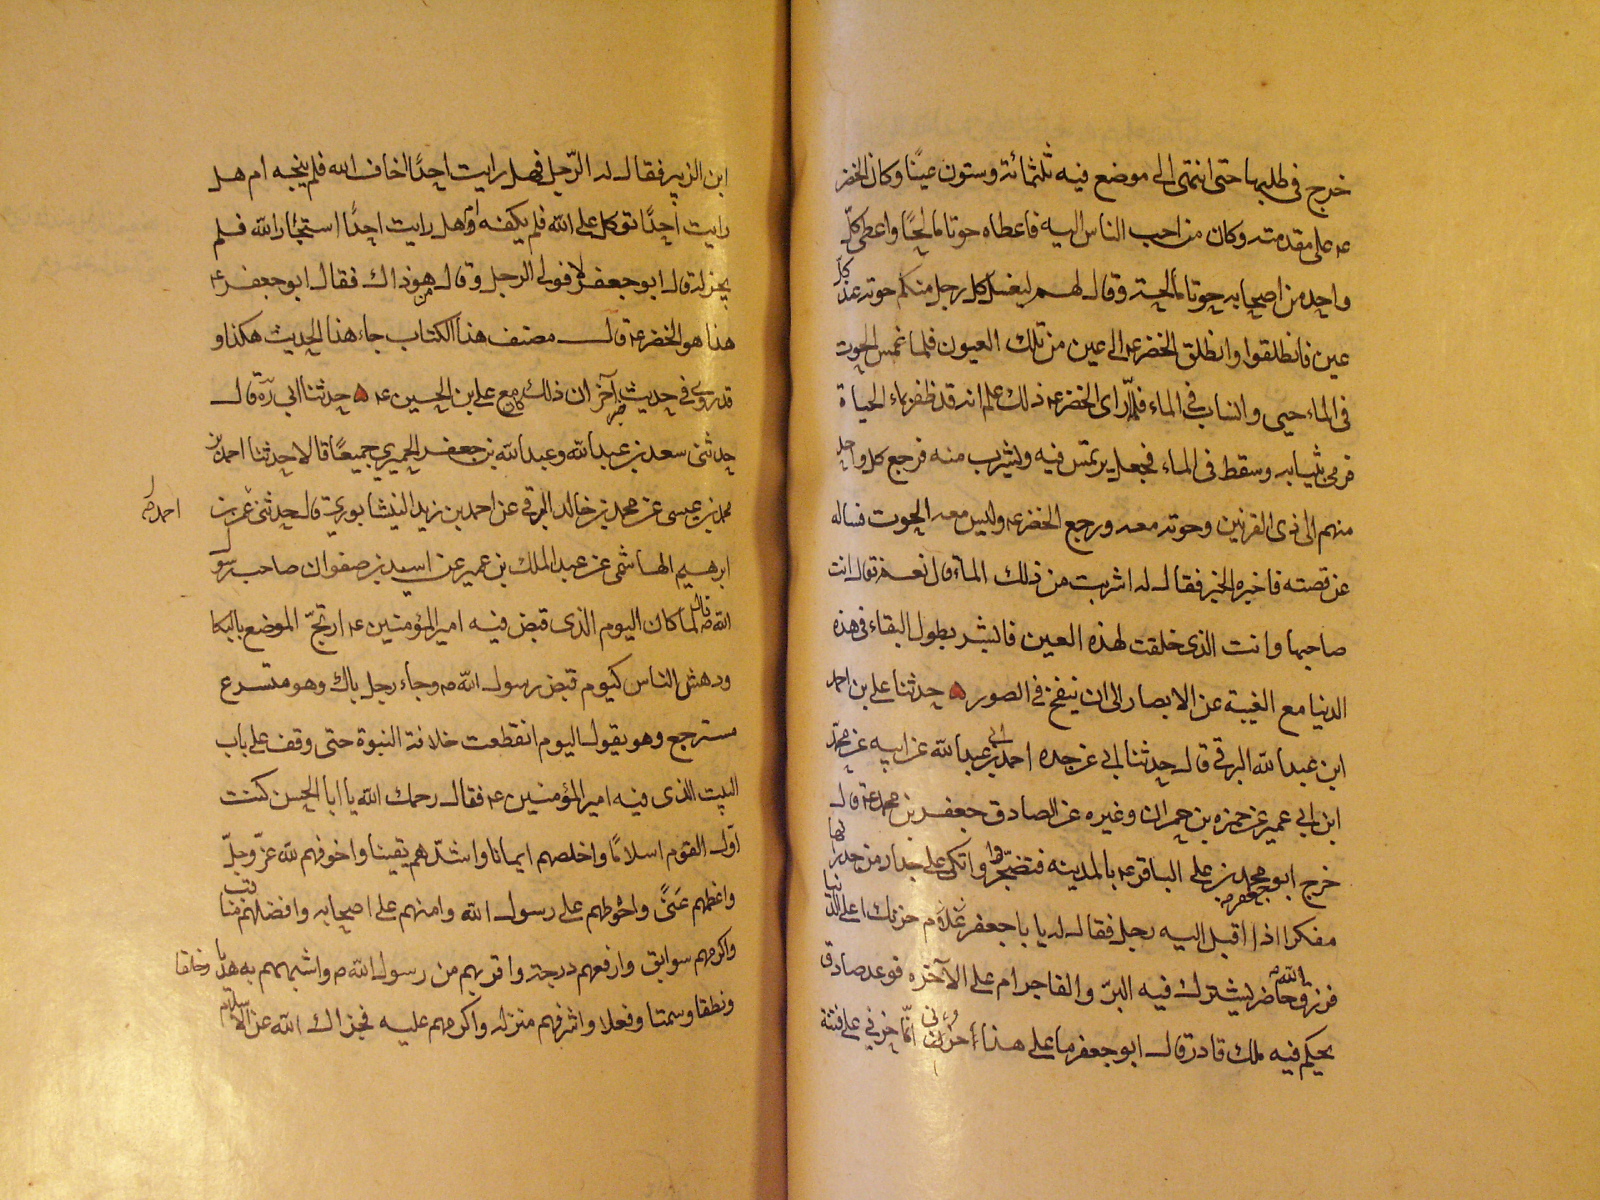 خرج فى طلبها حتى انتهى الى موضع فيه ثلثمائة وستون عينا وكان الخضر
ع على مقدمته وكان من احب الناس اليه فاعطاه حوتا مالحا واعطى كل
واحد من اصحابه حوتا مالحة وقال لهم ليغسل كل رجل منكم حوته عند كل
عين فانطلقوا وانطلق الخضر ع الى عين من تلك العيون فلما غمس الحوت
فى الماء حيى وانساب فى الماء فلما راى الخضر ع ذلك علم انه قد ظفر بماء الحياة
فرمى بثيابه وسقط فى الماء فجعل يرتمس فيه ويشرب منه فرجع كل واحد
منهم الى ذى القرنين وحوته معه ورجع الخضر ع وليس معه الحوت فساله
عن قصته فاخبره الخبر فقال له اشربت من ذلك الماء قال نعم قال انت
صاحبها وانت الذى خلقت لهذه العين فابشر بطول البقاء فى هذه
الدنيا مع الغيبة عن الابصار الى ان ينفخ فى الصور حدثنا على بن احمد
ابن عبد الله البرقى قال حدثنا ابى عن جده احمد بن ابى عبد الله عن ابيه عن محمد
ابن ابى عمير عن حمزة بن حمران وغيره عن الصادق جعفر بن محمد ع قال
خرج ابو جعفر محمد بن على الباقر ع بالمدينه فتضجر واتكى على جدار من جدرانها
مفكرا اذا اقبل اليه رجل فقال له يا با جعفر علام حزنك اعلى الدنيا
فرزق الله حاضر يشترك فيه البر والفاجر ام على الآخره فوعد صادق
يحكم فيه ملك قادر قال ابو جعفر ما على هذا احزن انما حزنى على فتنة
ابن الزبير فقال له الرجل فهل رايت احدا خاف الله فلم ينجه ام هل
رايت احدا توكل على الله فلم يكفه وهل رايت احدا استجار الله فلم
يجره قال ابو جعفر لا فولى الرجل وقال هو ذاك فقال ابو جعفر ع
هذا هو الخضر ع قال مصنف هذا الكتاب جاء هذا الحديث هكذا و
قد روى فى حديث آخر ان ذلك كان مع على بن الحسين ع حدثنا ابى ره قال
حدثنى سعد بن عبد الله وعبد الله بن جعفر الحميرى جميعا قالا حدثنا احمد بن
محمد بن عيسى عن محمد بن خالد البرقى عن احمد بن زيد النيشابورى قال حدثنى عمر بن
احمد
ابرهيم الهاشمى عن عبد الملك بن عمير عن اسيد بن صفوان صاحب رسول
الله ص قال لما كان اليوم الذى قبض فيه امير المؤمنين ع ارتج الموضع بالبكا
ودهش الناس كيوم قبض رسول الله ص وجاء رجل باك وهو متسرع
مسترجع وهو يقول اليوم انقطعت خلافة النبوة حتى وقف على باب
البيت الذى فيه امير المؤمنين ع فقال رحمك الله يا ابا الحسن كنت
اول القوم اسلاما واخلصهم ايمانا واشدهم يقينا واخوفهم لله عز وجل
واعظمهم عنا واحوطهم على رسول الله وامنهم على اصحابه وافضلهم مناقب
واكرمهم سوابق وارفعهم درجة واقربهم من رسول الله ص واشبههم به هديا وخلقا
ونطقا وسمتا وفعلا واشرفهم منزله واكرمهم عليه فجزاك الله عن الاسلام